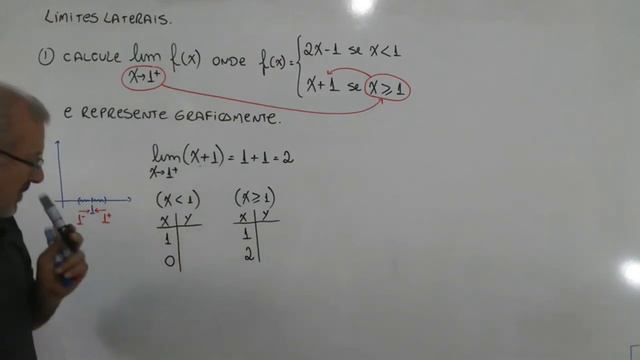 LIMITES LATERAIS.
① CALCULE lim f(x) ONDE f(x)= { 2x-1 se x<1
x→1⁺
x+1 se x≥1
E REPRESENTE GRAFICAMENTE.
lim (x+1) = 1+1 = 2
x→1⁺
(x<1) (x≥1)
x | y x | y
1⁻ → 1 ← 1⁺
1 | 1 |
0 | 2 |